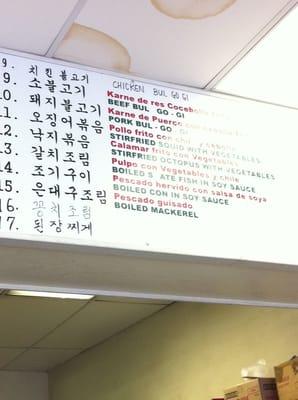 9.
9. 치킨불고기 CHICKEN BUL GO GI
10. 소불고기 Karne de res Cocebolla
BEEF BUL GO - GI
11. 돼지불고기 Karne de Puerco
PORK BUL - GO - GI
12. 오징어볶음 Pollo frito con chile y cebolla
STIRFRIED SQUID WITH VEGETABLES
13. 낙지볶음 Calamar frito con Vegetables
STIRFRIED OCTOPUS WITH VEGETABLES
14. 갈치조림 Pulpo con Vegetables y chile
BOILED ATE FISH IN SOY SAUCE
15. 조기구이 Pescado hervido con salsa de soya
BOILED CON IN SOY SAUCE
16. 은대구조림 Pescado guisado
BOILED MACKEREL
17. 꽁치조림
된장찌게